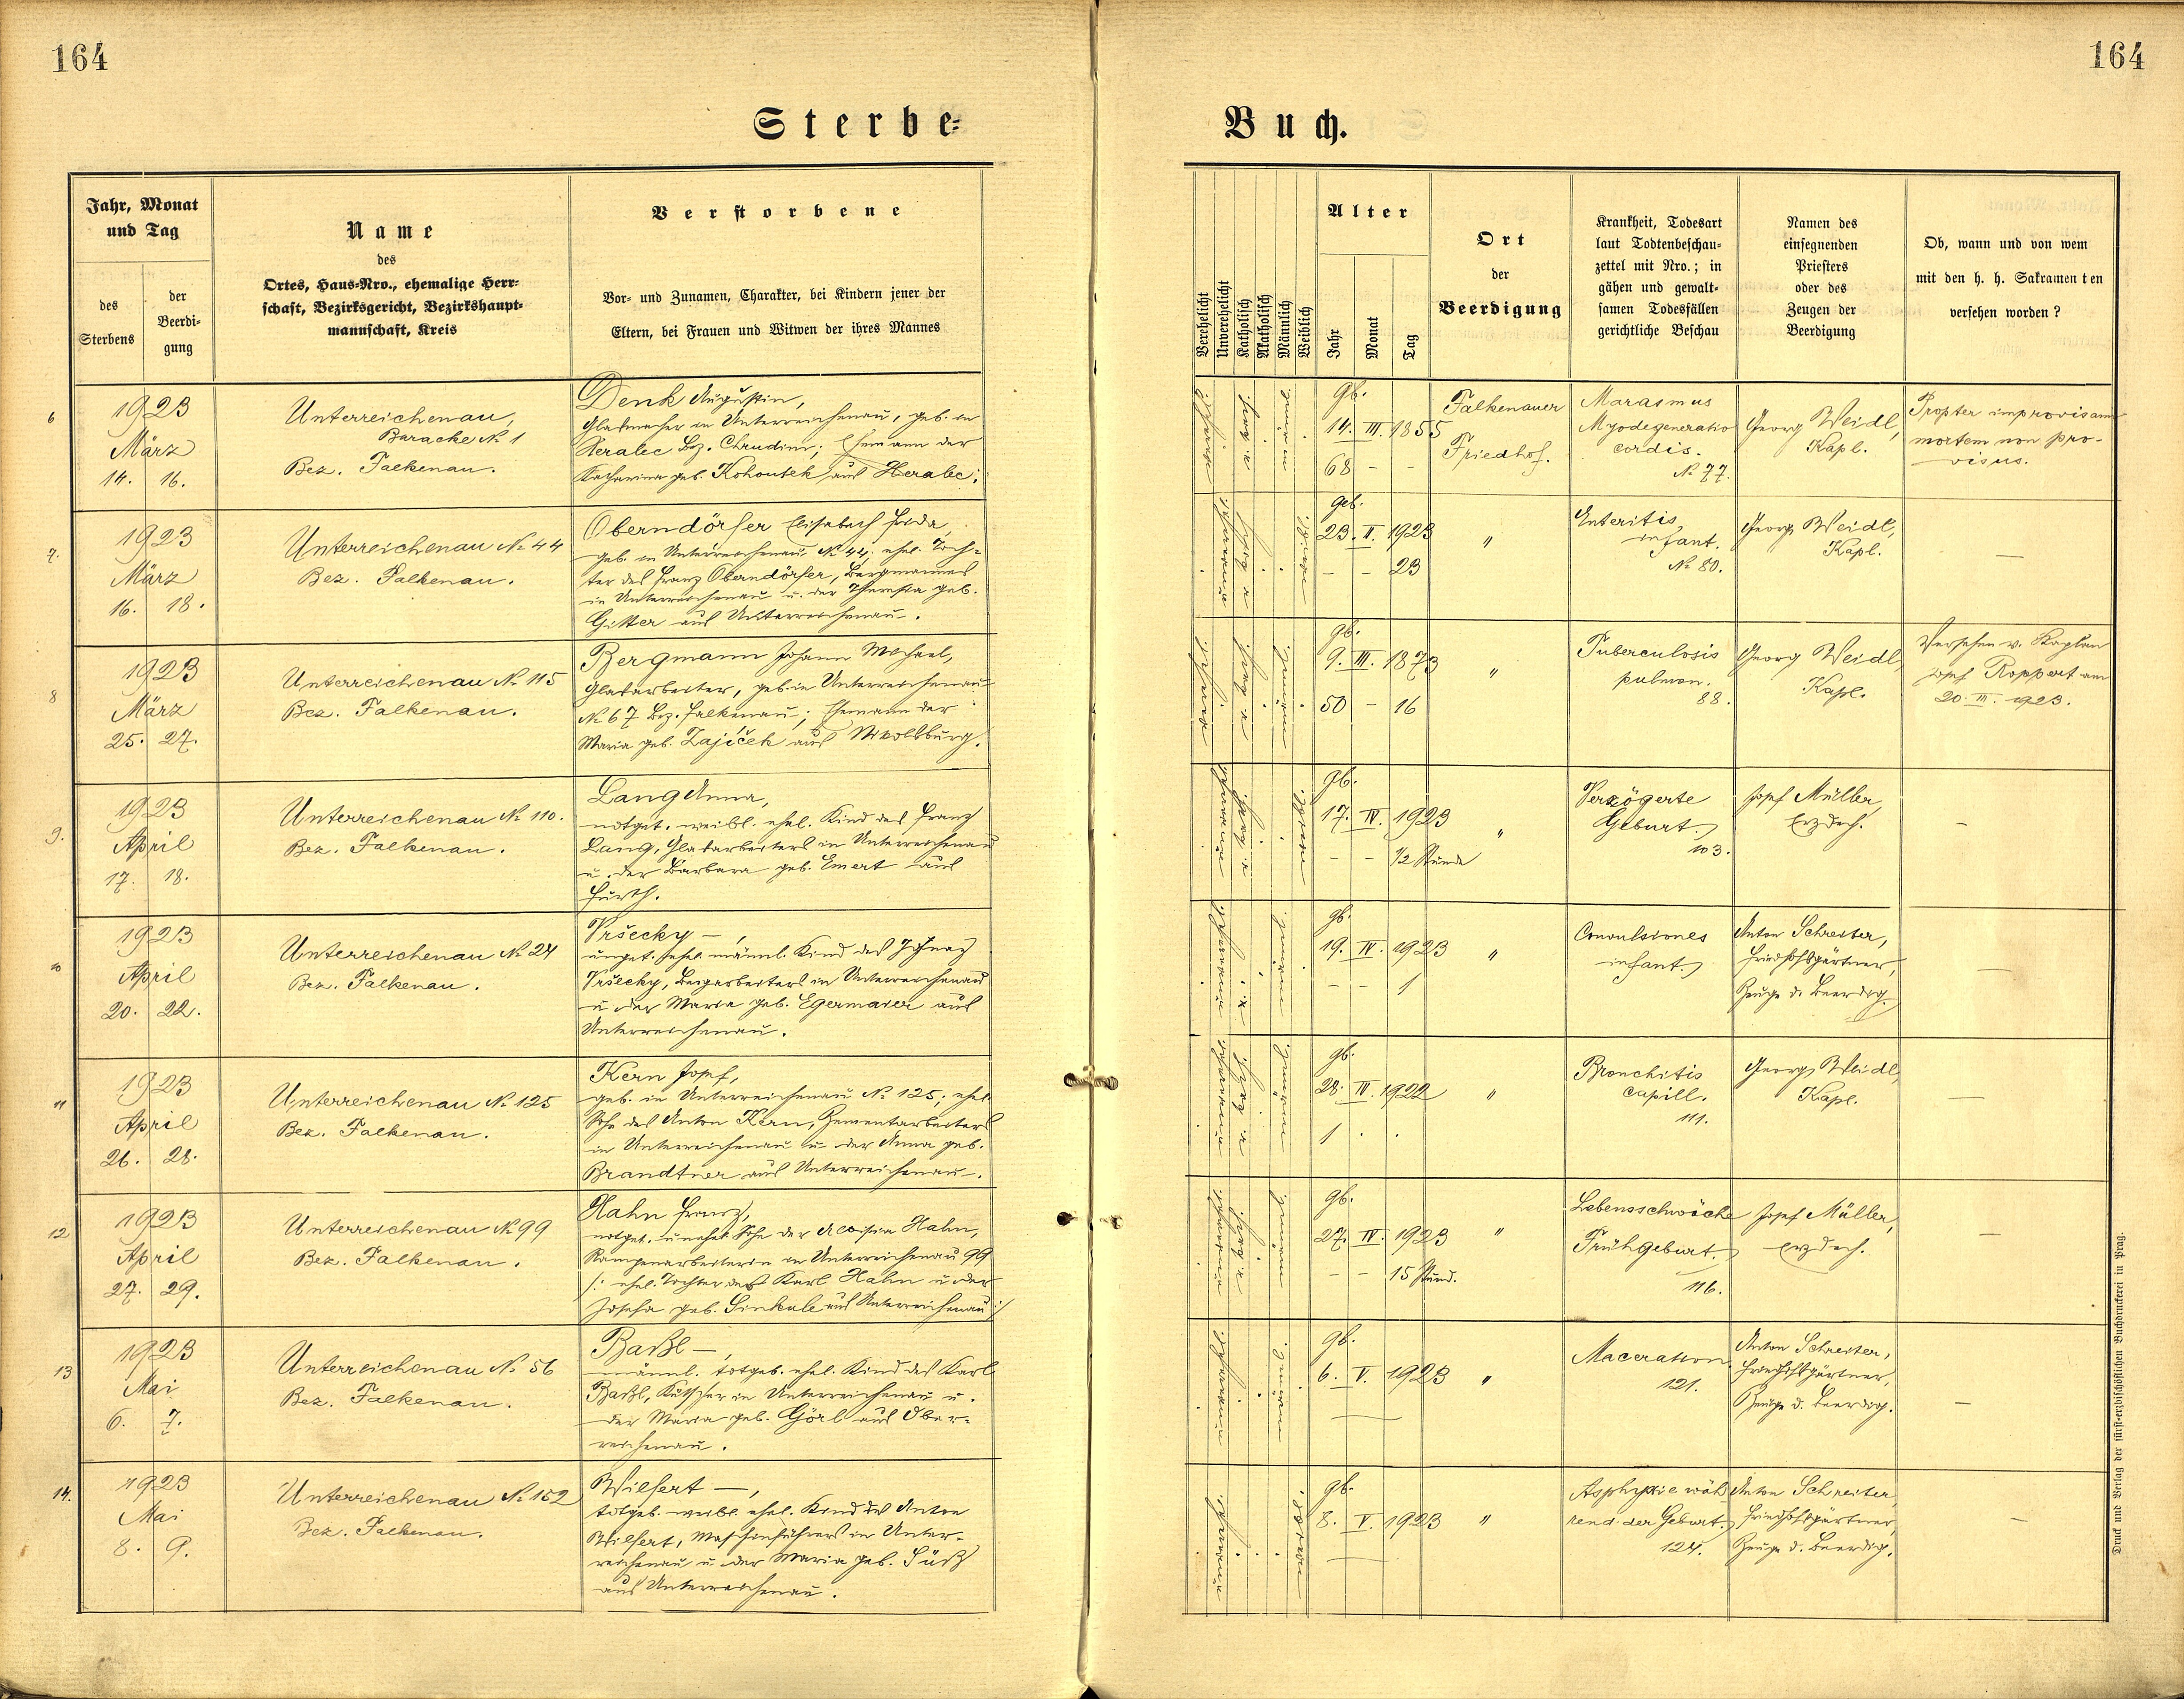 164
164
Sterbe-
Buch.
Jahr, Monat
und Tag
des
Sterbens
der
Beerdi-
gung
Name
des
Ortes, Haus-Nro., ehemalige Herr-
schaft, Bezirksgericht, Bezirkshaupt-
mannschaft, Kreis
Verstorbene
Vor- und Zunamen, Charakter, bei Kindern jener der
Eltern, bei Frauen und Witwen der ihres Mannes
Verehelicht
Unverehelicht
Katholisch
Akatholisch
Männlich
Weiblich
Alter
Jahr
Monat
Tag
Ort
der
Beerdigung
Krankheit, Todesart
laut Todtenbeschau-
zettel mit Nro.; in
gähen und gewalt-
samen Todesfällen
gerichtliche Beschau
Namen des
einsegnenden
Priesters
oder des
Zeugen der
Beerdigung
Ob, wann und von wem
mit den h. h. Sakramenten
versehen worden?
6
1923
März
14. 16.
Unterreichenau,
Baracke № 1
Bez. Falkenau.
Denk Augustin,
Glasmacher in Unterreichenau, geb. in
Heralec Bez. Chrudim; Ehemann der
Katharina geb. Kohoutek aus Heralec;
gb.
14. III. 1855
68 - -
Falkenauer
Friedhof.
Marasmus
Myodegeneratio
cordis.
№ 77.
Georg Weidl,
Kapl.
Propter improvisam
mortem non pro-
visus.
7.
1923
März
16. 18.
Unterreichenau № 44
Bez. Falkenau.
Oberndörfer Elisabeth Frida,
geb. in Unterreichenau № 44; ehel. Toch-
ter des Franz Oberndörfer, Bergmannes
in Unterreichenau u. der Theresia geb.
Gitter aus Unterreichenau.
geb.
23. II. 1923
- - 23
"
Enteritis
infant.
№ 80.
Georg Weidl,
Kapl.
—
8
1923
März
25. 27.
Unterreichenau № 115
Bez. Falkenau.
Bergmann Johann Michael,
Glasarbeiter, geb. in Unterreichenau
№ 67 Bez. Falkenau; Ehemann der
Maria geb. Zajíček aus
gb.
9. III. 1873
50 - 16
"
Tuberculosis
pulmon.
88.
Georg Weidl,
Kapl.
Versehen v. Kaplan
Josef Roppert am
20. III. 1923.
9.
1923
April
17. 18.
Unterreichenau № 110.
Bez. Falkenau.
Lang Anna,
notget. weibl. ehel. Kind des Franz
Lang, Glasarbeiters in Unterreichenau
u. der Barbara geb. Emert aus
Fürth.
gb.
17. IV. 1923
- - 1/2 Stunde
"
Verzögerte
Geburt.
103.
Josef Müller,
Erzdech.
—
10
1923
April
20. 22.
Unterreichenau № 24
Bez. Falkenau.
Vršecky —,
unget. ehel. männl. Kind des Ignaz
Vršecky, Bergarbeiters in Unterreichenau
u. der Maria geb. Egermaier aus
Unterreichenau.
gb.
19. IV. 1923
- - 1
"
Convulsiones
infant.
Anton Schreiter,
Friedhofsgärtner,
Zeuge d. Beerdig.
—
11
1923
April
26. 28.
Unterreichenau № 125
Bez. Falkenau.
Kern Josef,
geb. in Unterreichenau № 125; ehel.
Sohn des Anton Kern, Zementarbeiters
in Unterreichenau u. der Anna geb.
Brandtner aus Unterreichenau.
gb.
28. IV. 1922
1 . .
"
Bronchitis
capill.
111.
Georg Weidl,
Kapl.
—
12
1923
April
27. 29.
Unterreichenau № 99
Bez. Falkenau.
Hahn Franz,
notget. unehel. Sohn der Aloisia Hahn,
Rampenarbeiterin in Unterreichenau 99
/: ehel. Tochter des Karl Hahn u. der
Josefa geb. Sinkule aus Unterreichenau :/
gb.
27. IV. 1923
- - 15 Stund.
"
Lebensschwäche
Frühgeburt.
116.
Josef Müller,
Erzdech.
—
13
1923
Mai
6. 7.
Unterreichenau № 56
Bez. Falkenau.
Baßl —,
männl. totgeb. ehel. Kind des Karl
Baßl, Kutscher in Unterreichenau u.
der Maria geb. Görl aus Ober-
reichenau.
gb.
6. V. 1923
—
"
Maceration
121.
Anton Schreiter,
Friedhofsgärtner,
Zeuge d. Beerdig.
—
14.
1923
Mai
8. 9.
Unterreichenau № 152
Bez. Falkenau.
Wilfert —,
totgeb. weibl. ehel. Kind des Anton
Wilfert, Maschinführers in Unter-
reichenau u. der Maria geb. Süß
aus Unterreichenau.
gb.
8. V. 1923
—
"
Asphyxie wäh-
rend der Geburt.
124.
Anton Schreiter,
Friedhofsgärtner,
Zeuge d. Beerdig.
—
Druck und Verlag der fürst-erzbischöflichen Buchdruckerei in Prag.